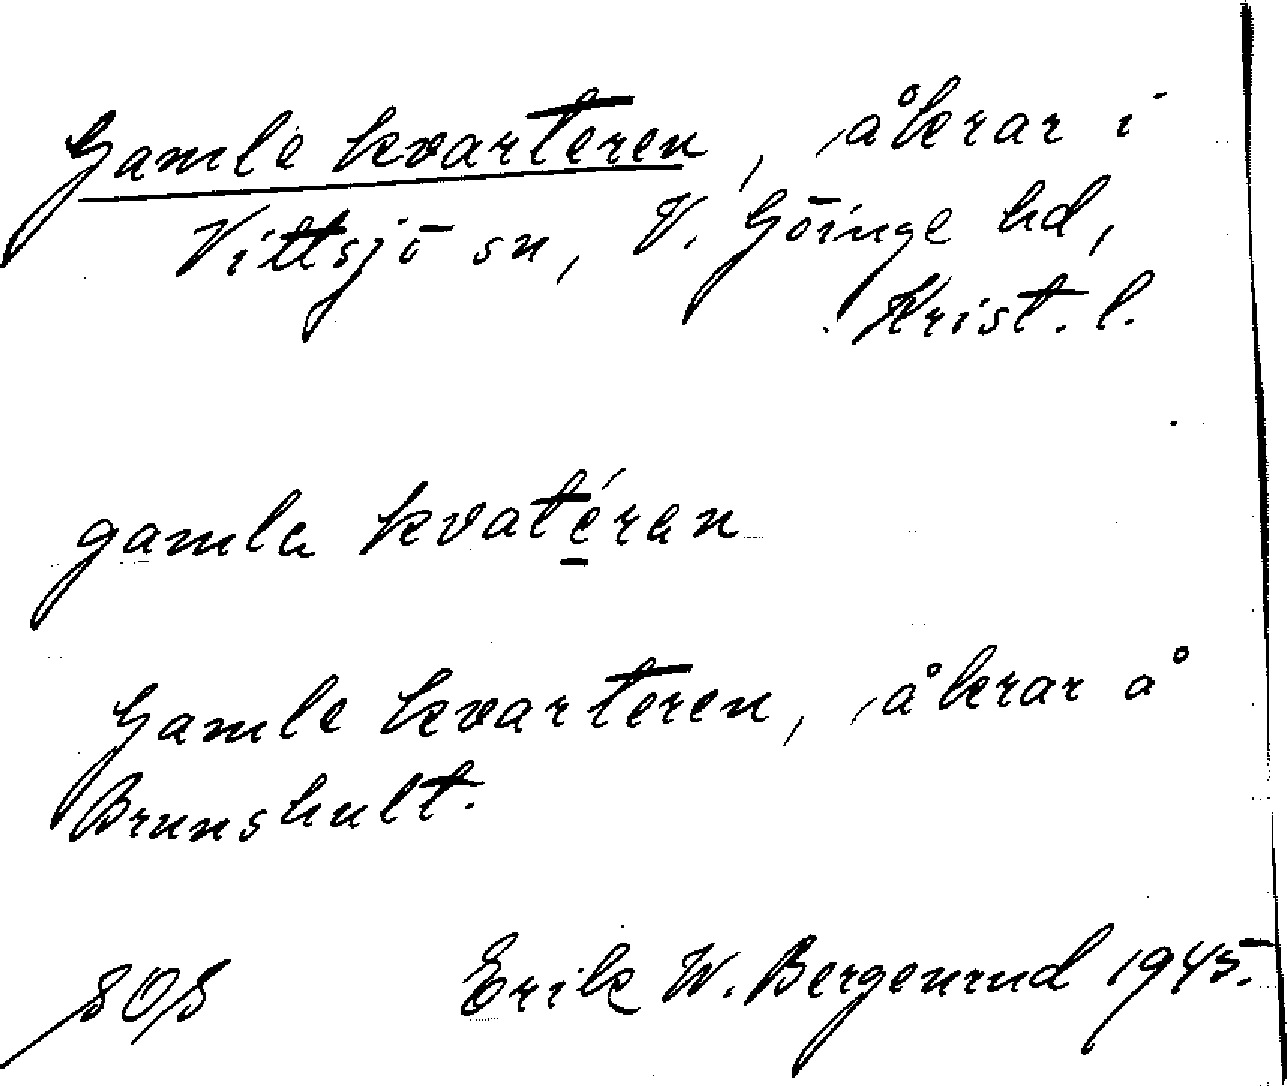 Gamle kvarteren, åkrar i
Vittsjö sn, V. Göinge hd,
Krist. l.
gamla kvatéran
Gamle kvarteren, åkrar å
Brunshult.
Erik W. Bergenrud 1945.